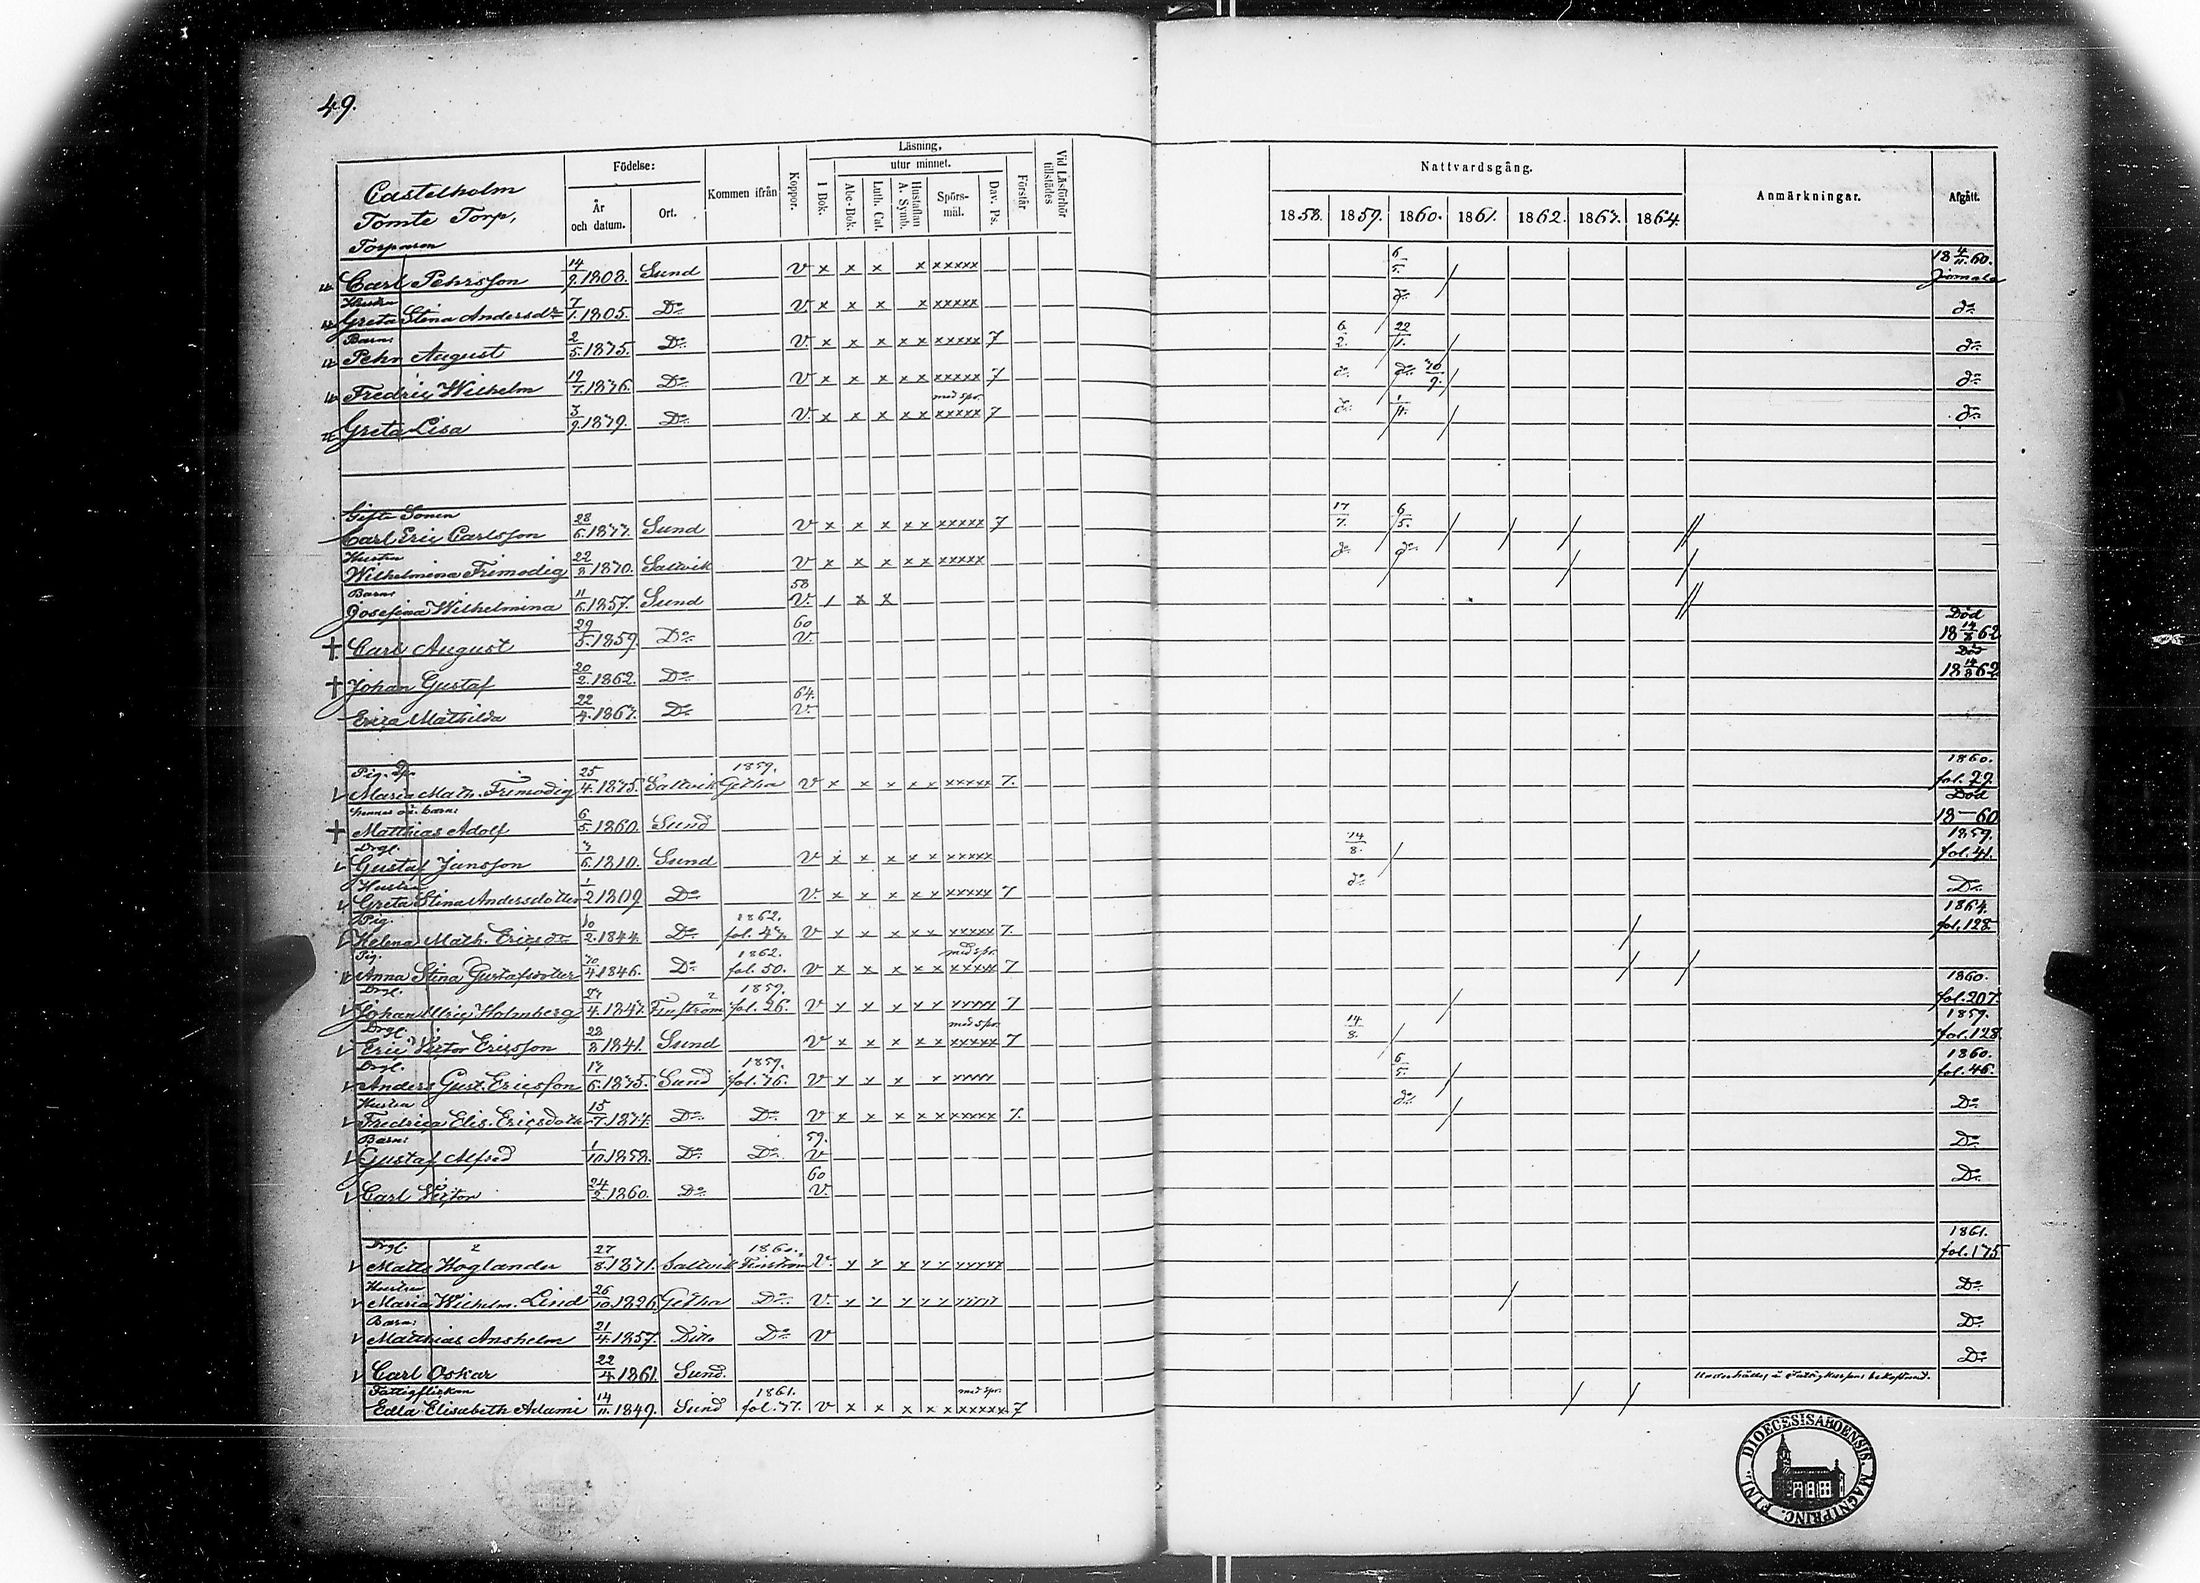 49.
Castelholm
Tomte Torp,
Torparen
Födelse:
År och datum.
Ort.
Kommen ifrån
Koppor.
Läsning,
utur minnet.
I Bok.
Abc-Bok.
Luth. Cat.
Hustaflan A. Symb.
Spörs-mål.
Dav. Ps.
Förstår
Vid Läsförhör tillstädes
Nattvardsgång.
1858. 1859. 1860. 1861. 1862. 1863. 1864.
Anmärkningar.
Afgått.
Carl Pehrsson 14/9. 1808. Sund v x x x x xxxxx 6/5. 18 4/11 60. Jomala
Hustru
Greta Stina Andersdr 7/1. 1805. Do v. x x x x xxxxx do do
Barn:
Pehr August 2/5. 1835. Do v. x x x x x xxxxx 7 6/2. 22/1. do
Fredric Wilhelm 19/7. 1836. Do v x x x x x xxxxx 7 do do 30/9. do
med spr.
Greta Lisa 3/9. 1839. Do v. x x x x x xxxxx 7 do 1/11. do
Gifte Sonen
Carl Eric Carlsson 28/6. 1833. Sund v x x x x x xxxxx 7 17/7. 6/5.
Hustru
Wilhelmina Frimodig 22/8 1830. Saltvik v x x x x x xxxxx do do
Barn:
Josefina Wilhelmina 11/6. 1857. Sund 58 v. / x x
Carl August 29/5. 1859. Do 60 v. Död 18 14/8 62
Johan Gustaf 20/2. 1862. Do Död 18 14/8 62
Erica Mathilda 22/4. 1863. Do 64. v.
Pig.
Maria Math. Frimodig 25/4. 1835. Saltvik 1859. Getha v x x x x x xxxxx 7. 1860. fol. 29.
hennes oä. barn:
Matthias Adolf 6/5. 1860. Sund Död 18 — 60
Drgl.
Gustaf Jansson 3/6. 1810. Sund v x x x x x xxxxx 14/8. 1859. fol. 41.
Hustru
Greta Stina Andersdotter 1/2 1809 Do v. x x x x x xxxxx 7 do Do
Pig.
Helena Math. Ericsdr 10/2. 1844. Do 1862. fol. 43. v x x x x x xxxxx 7. 1864. fol. 128.
Pig. med spr.
Anna Stina Gustafsdotter 30/4 1846. Do 1862. fol. 50. v x x x x x xxxxx 7
Drgl.
Johan Ulric Holmberg 23/4. 1843. Finström 1859. fol. 26. v x x x x x xxxxx 7 1860. fol. 207.
Drgl. med spr.
Eric Victor Ericsson 28/8 1841. Sund v x x x x x xxxxx 7 14/8. 1859. fol. 128.
Drgl.
Anders Gust. Ericsson 13/6. 1835. Sund 1859. fol. 36. v x x x x xxxxx 6/5. 1860. fol. 46.
Hustru
Fredrica Elis. Ericsdotr 15/7. 1834. Do Do v x x x x x xxxxx 7. do Do
Barn:
Gustaf Alfred 1/10. 1858. Do Do 59. v Do
Carl Victor 24/2. 1860. Do 60 v. Do
Drgl.
Matts Höglander 27/8. 1831. Saltvik 1860. Finström v. x x x x x xxxxx 1861. fol. 135
Hustru
Maria Wilhelm. Lind 26/10. 1826 Getha Do v. x x x x x xxxxx Do
Barn:
Matthias Anshelm 21/4. 1857. Ditto Do v Do
Carl Oskar 22/4. 1861. Sund. Do
Fattigflickan med spr.
Edla Elisabeth Adami 14/11. 1849. Sund 1861. fol. 37. v x x x x x xxxxx 7 Underhålles å Fattigkassans bekostnad.
DIOECESIS ABOENSIS. MAGNI PRINC. FINL.